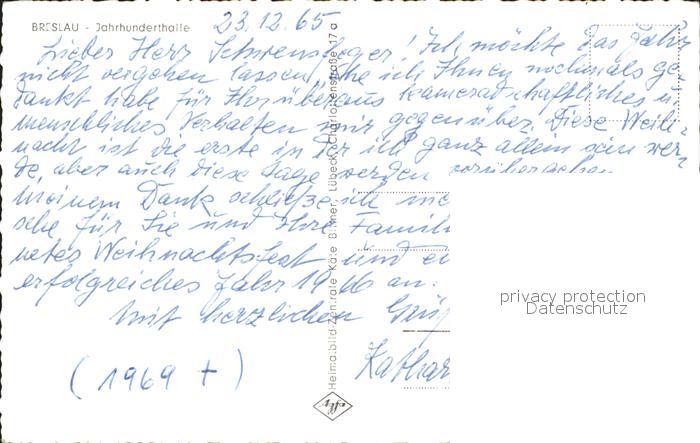 BRESLAU - Jahrhunderthalle
23.12.65
Lieber Herr ! Ich möchte das Jahr
nicht vergehen lassen, ehe ich Ihnen nochmals ge
dankt habe für Ihr überaus kameradschaftliches u.
menschliches Verhalten mir gegenüber. Diese Weih-
nacht ist die erste in der ich ganz allein sein wer
de, aber auch diese Tage werden vorübergehen
Meinem Dank schließe ich me
sche für Sie und Ihre Famili
netes Weihnachtsfest und ei
erfolgreiches Jahr 1966 an.
Mit herzlichen Grüß
Kathar
(1969 +)
Heimatbild-Zentrale Käte Lübeck, Charlottenstraße 17a
Agfa
privacy protection
Datenschutz